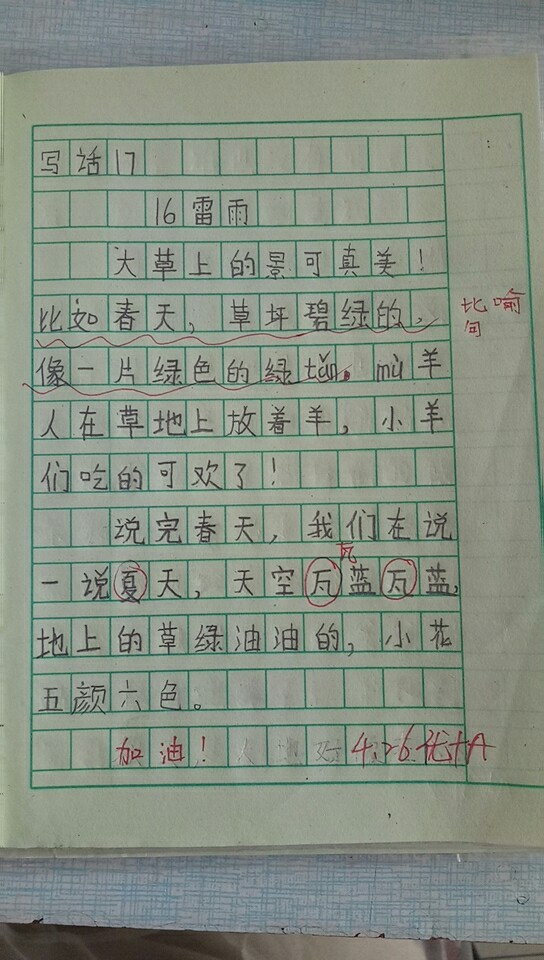 写话17
16雷雨
大草上的景可真美！
比如春天，草坪碧绿的，
比喻
句
像一片绿色的绿tǎn。mù羊
人在草地上放着羊，小羊
们吃的可欢了！
说完春天，我们在说
瓦
一说夏天，天空瓦蓝瓦蓝，
地上的草绿油油的，小花
五颜六色。
加油！ 4.26 优+A